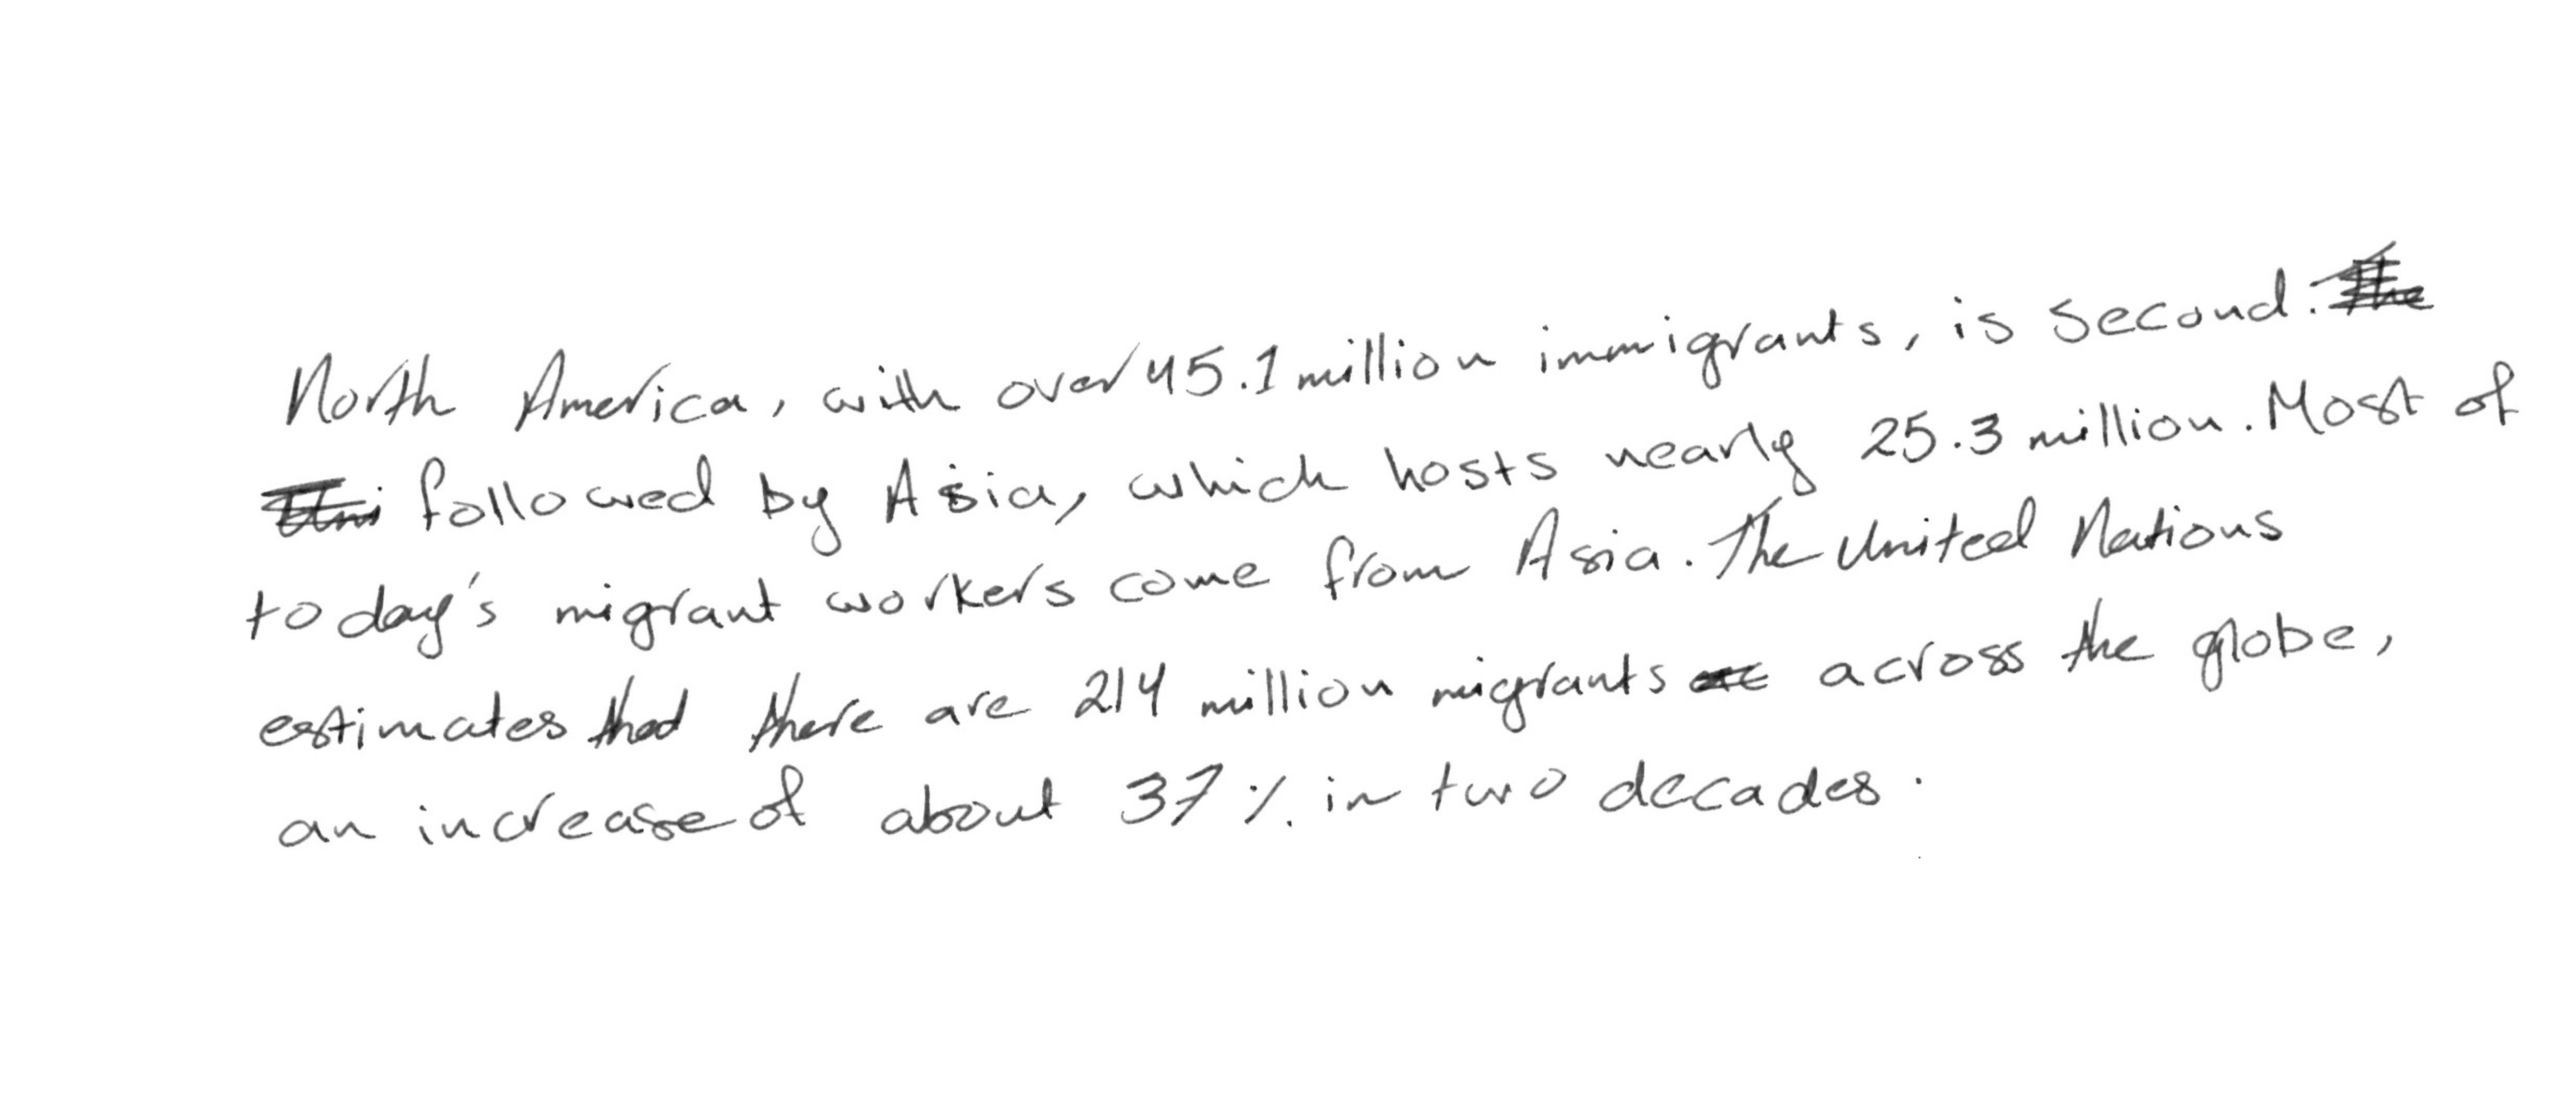 North America, with over 45.1 million immigrants, is second.
followed by Asia, which hosts nearly 25.3 million. Most of
today's migrant workers come from Asia. The United Nations
estimates that there are 214 million migrants across the globe,
an increase of about 37% in two decades.